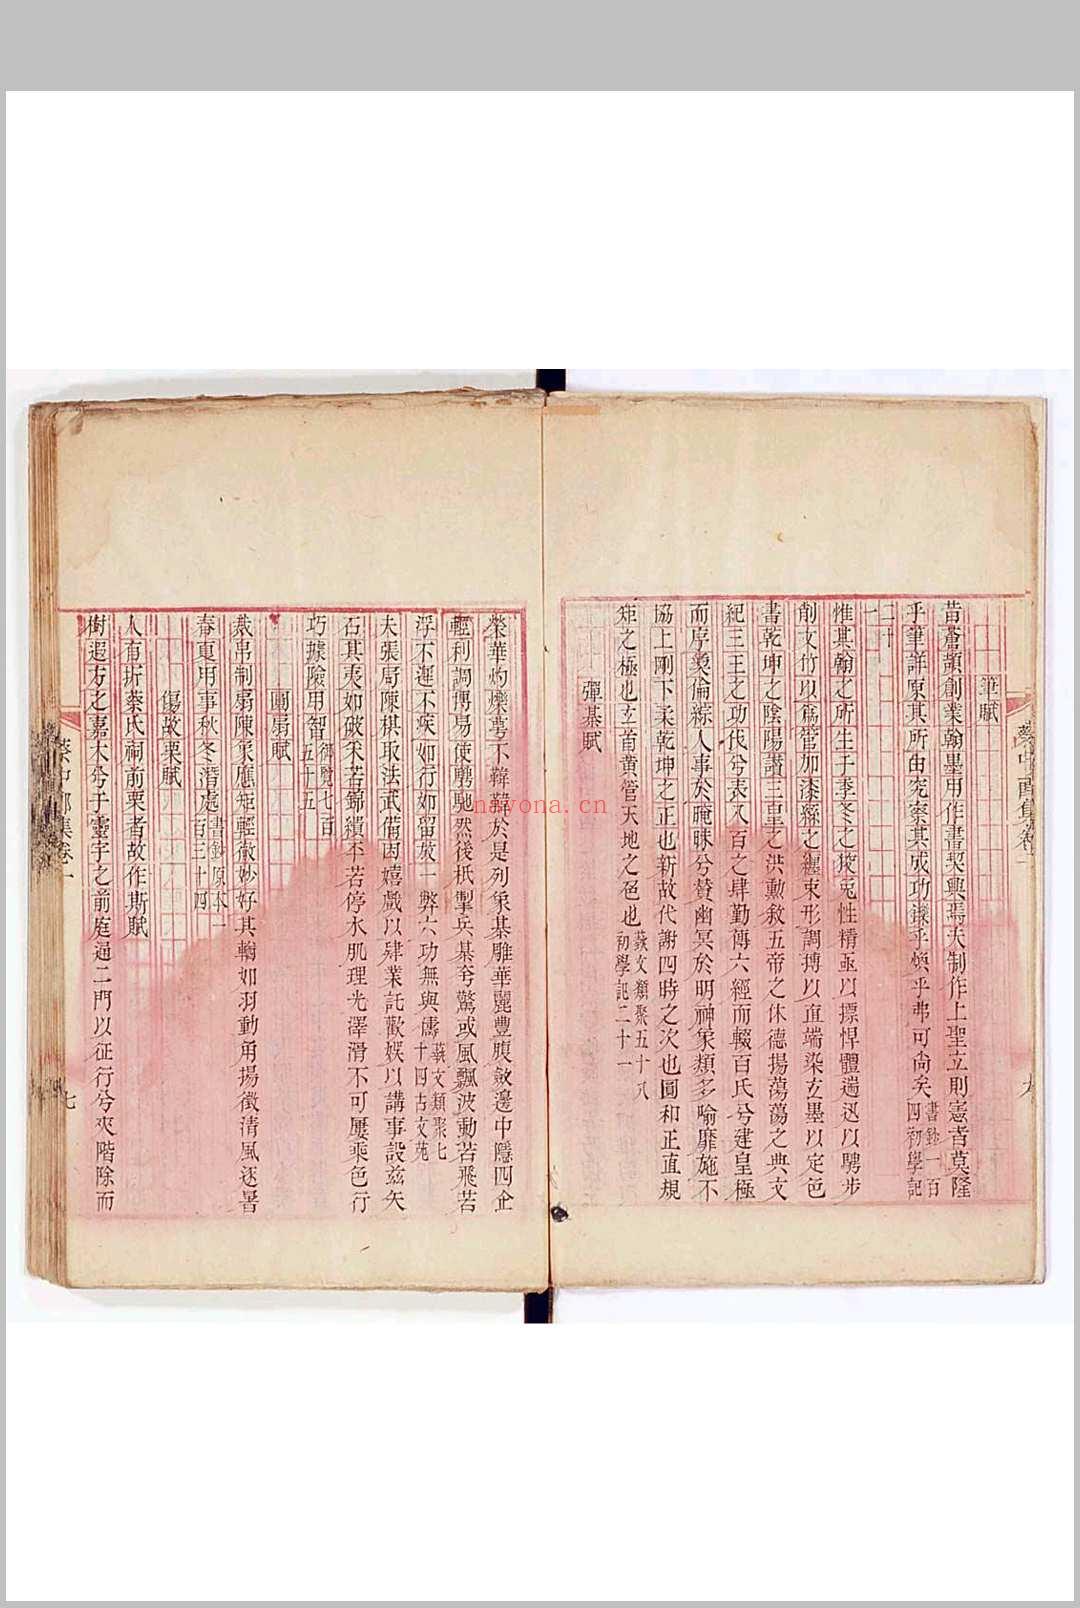 蔡中郎集卷一
筆賦
昔蒼頡創業翰墨用作書契興焉夫制作上聖立則憲者莫隆
乎筆詳原其所由究察其成功鑠乎煥乎弗可尚矣書鈔一百四初學記
二十一
惟其翰之所生于季冬之狡兔性精亟以摽悍體遄迅以騁步
削文竹以爲管加漆絲之纏束形調摶以直端染玄墨以定色
書乾坤之陰陽讚三皇之洪勳敘五帝之休德揚蕩蕩之典文
紀三王之功伐兮表八百之肆勤傳六經而輟百氏兮建皇極
而序彝倫綜人事於晻昧兮贊幽冥於明神象類多喻靡施不
協上剛下柔乾坤之正也新故代謝四時之次也圓和正直規
矩之極也玄首黄管天地之色也蓺文類聚五十八初學記二十一
彈棊賦
榮華灼爍萼不韡韡於是列象棊雕華麗豐腴斂邊中隱四企
輕利調博易使騁馳然後柢掣兵棊夸驚或風飄波動若飛若
浮不遲不疾如行如留放一弊六功無與儔蓺文類聚七十四古文苑
夫張局陳棋取法武備因嬉戲以肄業託歡娱以講事設茲矢
石其夷如破采若錦繢平若停水肌理光澤滑不可屢乘色行
巧據險用智御覽七百五十五
團扇賦
裁帛制扇陳象應矩輕徹妙好其輶如羽動角揚徵清風逐暑
春夏用事秋冬潛處書鈔原本一百三十四
傷故栗賦
人有折蔡氏祠前栗者故作斯賦
樹遐方之嘉木兮于靈宇之前庭通二門以征行兮夾階除而
蔡中郎集卷一
七